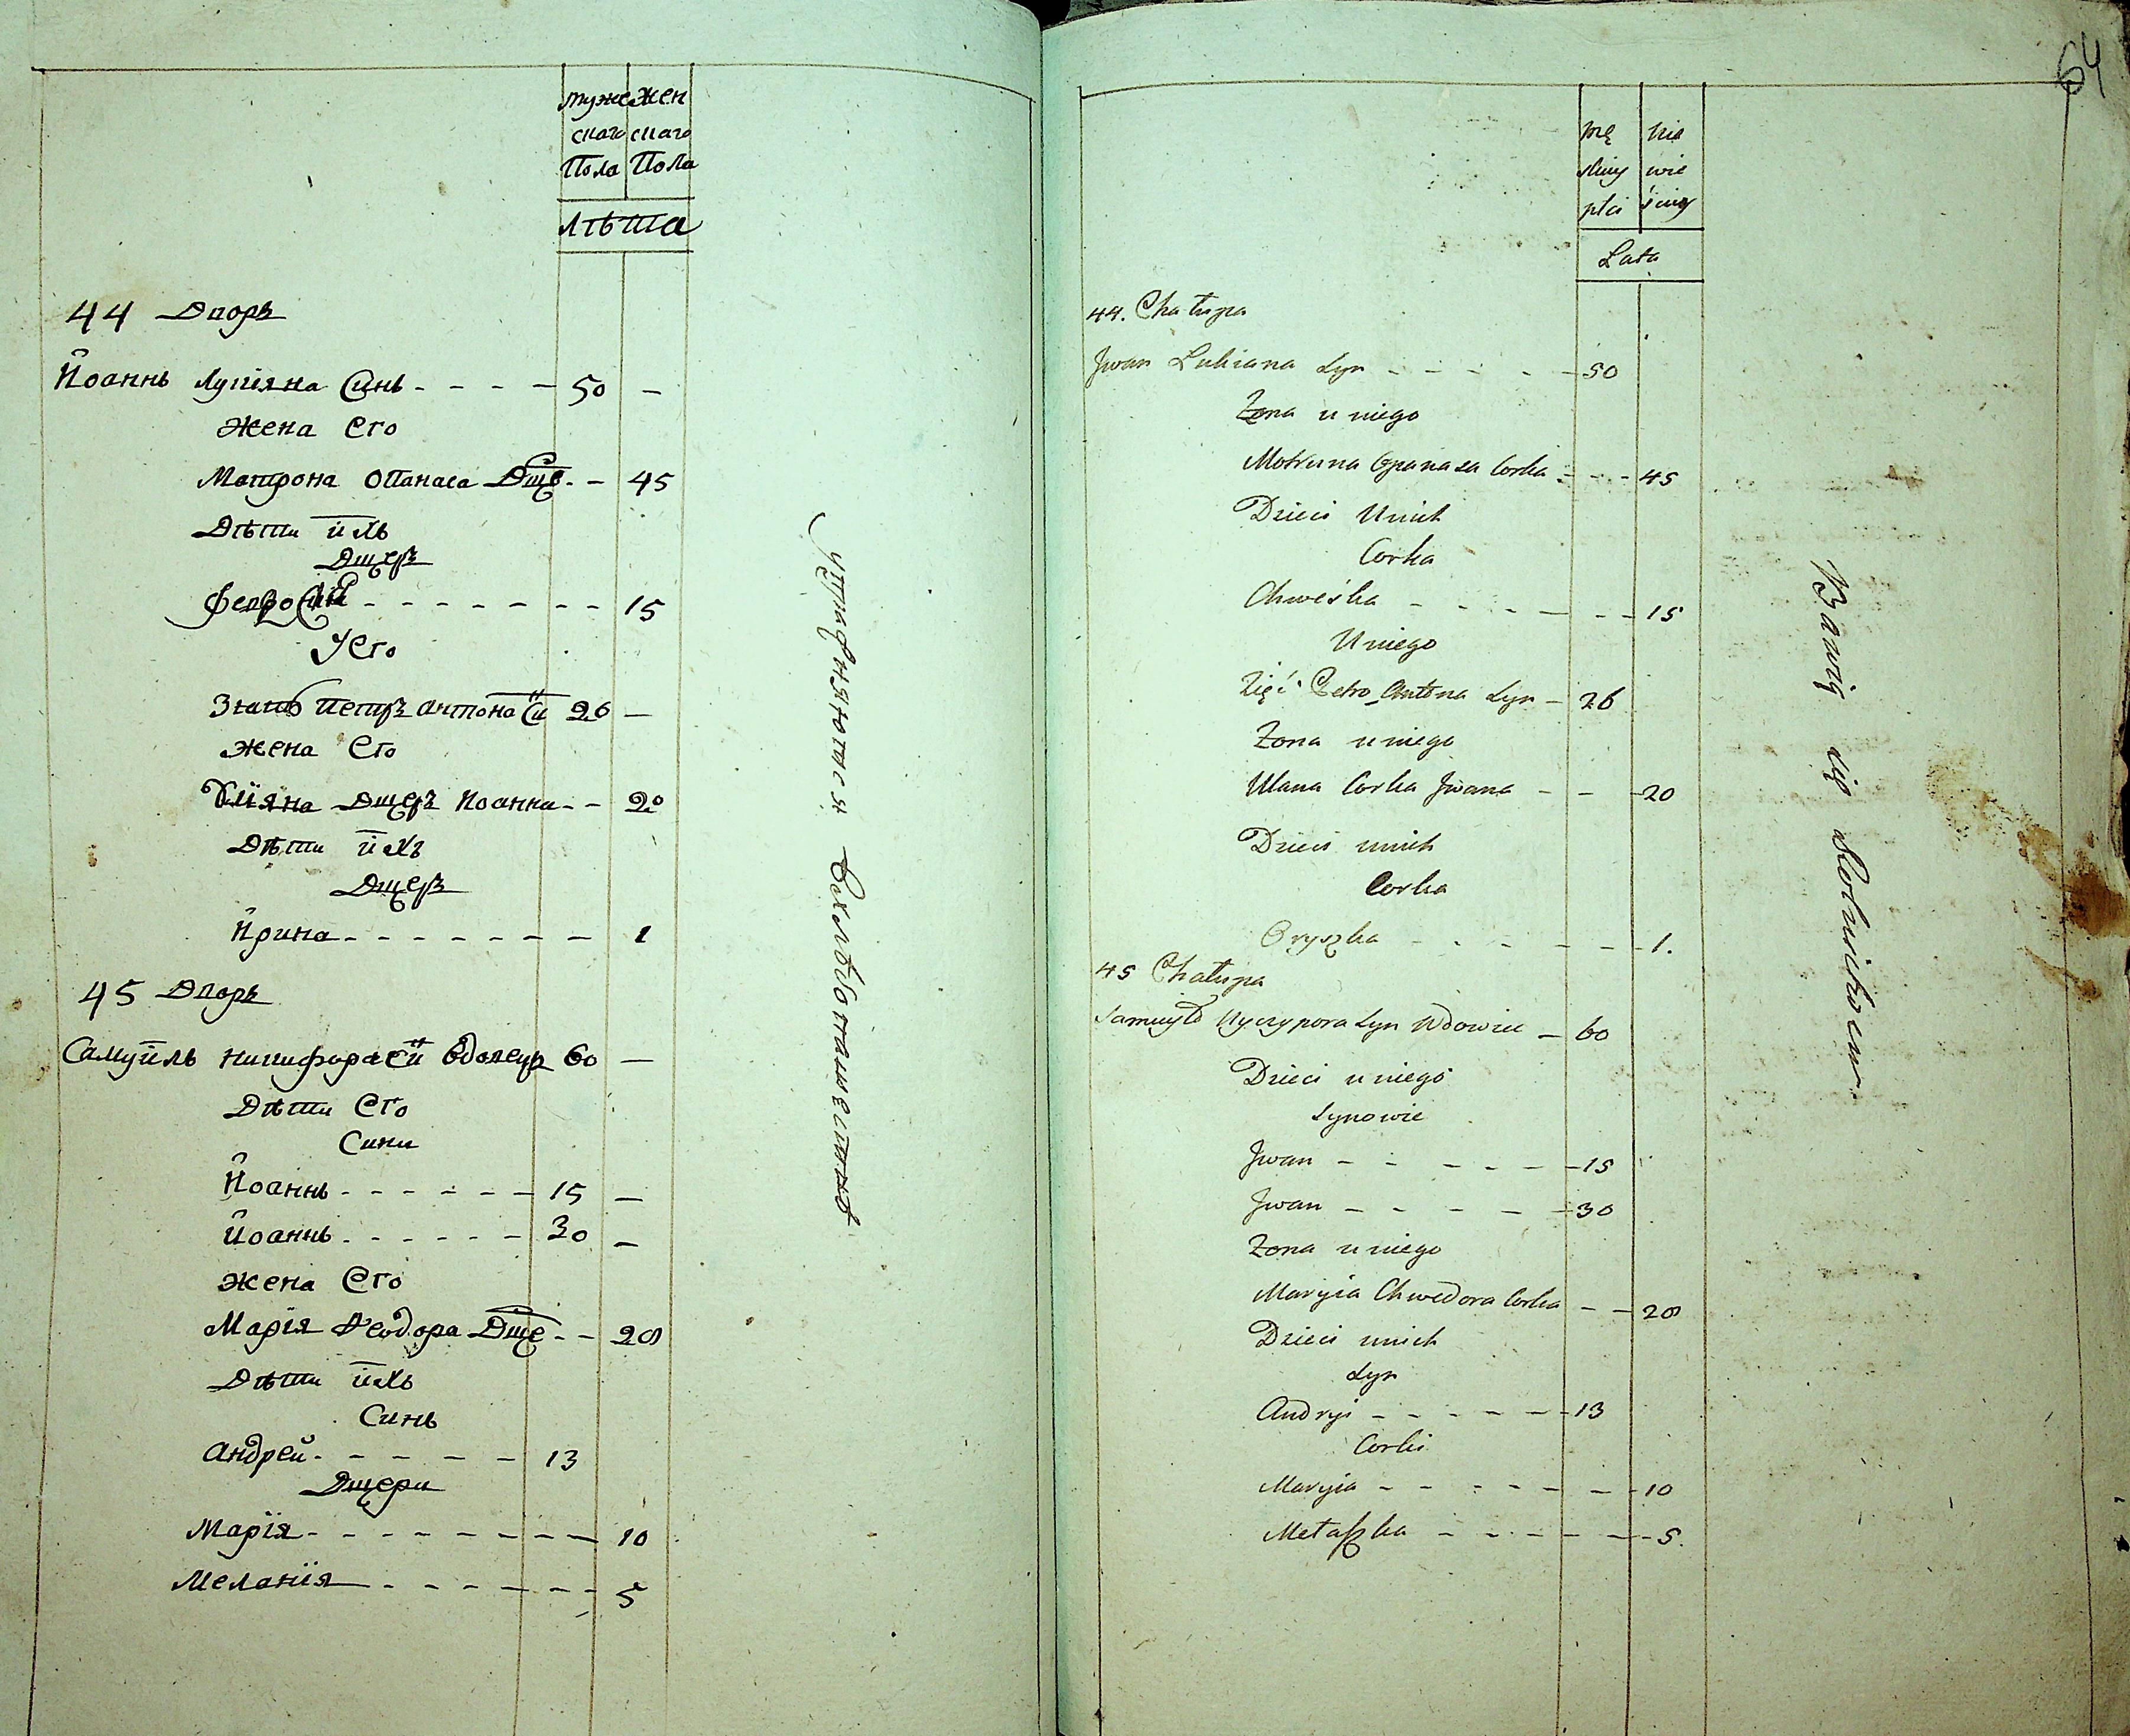 муже жен
скаго скаго
Пола Пола
лѣта
44 Дворъ
Йоаннъ Лукіяна Синъ - - - - 50 -
Жена Его
Матрона Опанаса Дще - - 45
Дѣти ихъ
Дщеръ
Феодосія - - - - - - - - 15
У Его
Зять Петръ Антона Си 26 -
Жена Его
Уліяна Дщеръ Иоанна - - 20
Дѣти ихъ
Дщеръ
Ирина - - - - - - - 1
45 Дворъ
Самуйлъ Никифора Си Вдовецъ 60 -
Дѣти Его
Сини
Йоаннъ - - - - - - 15 -
Йоаннъ - - - - - - 30 -
Жена Его
Марія Феодора Дще - - 28
Дѣти ихъ
Синъ
Андрей - - - - - 13
Дщери
Марїя - - - - - - - - - 10
Меланїя - - - - - - - 5
Упражняются Вхлѣбопашествѣ
64
mę nie
skiey wie
płci ściey
Lata
44. Chałupa
Jwan Lukiana Syn - - - - - 50
Żona u niego
Motruna Opanasa Corka - - - 45
Dzieci Unich
Corka
Chweśka - - - - - - 15
U niego
Zięć Petro Antona Syn - 26
Żona u niego
Ulana Corka Jwana - - - 20
Dzieci unich
Corka
Oryszka - - - - - - 1.
45 Chałupa
Samuyło Nyczypora Syn Wdowiec - 60
Dzieci u niego
Synowie
Jwan - - - - - - 15
Jwan - - - - - - 30
Żona u niego
Maryia Chwedora Corka - - 28
Dzieci unich
Syn
Andryi - - - - - - 13
Corki
Maryia - - - - - - - 10
Metaszka - - - - - - 5.
Bawią się Rolnictwem